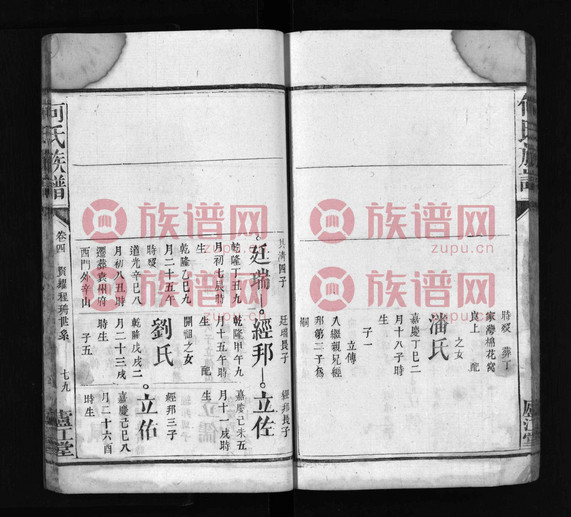 何氏族譜
時歿 葬丁
家灣棉花窩
良上 配
潘氏
之女
嘉慶丁巳二
月十八子時
子一
立傳
八繼親兄經
邦第二子為
嗣
廬江堂
其清四子
廷瑞
乾隆丁丑九
月初七辰時
生
乾隆乙巳九
月二十五午
時歿
道光辛巳八
月初八丑時
遷葬袁州府
西門外辛山
廷瑞長子
經邦
乾隆甲午九
月十五午時
生 配
開祖之女
劉氏
乾隆戊戌二
月二十三戌
時生
子五
經邦長子
立佐
嘉慶己未五
月十 戌時
生
經邦三子
立佑
嘉慶己巳八
月二十六酉
時生
何氏族譜
卷四
世系
七九
廬江堂
族谱网
www.zupu.cn
族谱网
www.zupu.cn
族谱网
www.zupu.cn
族谱网
www.zupu.cn